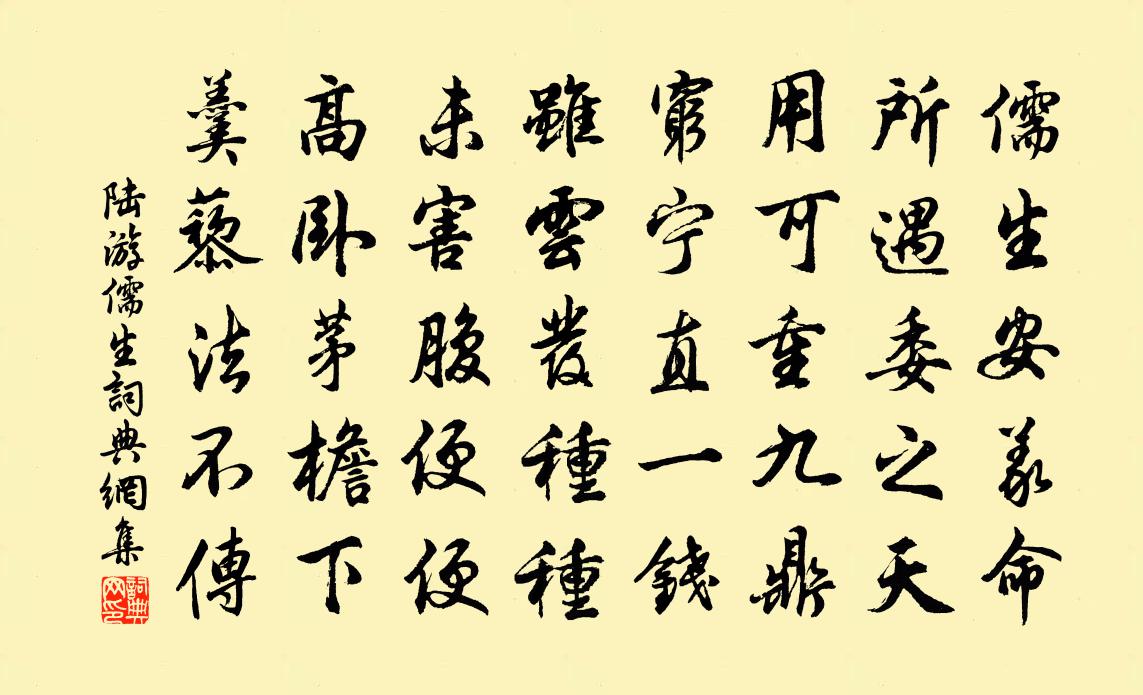 儒生安義命
所遇委之天
用可重九鼎
窮宁直一錢
雖雲發種種
未害腹便便
高卧茅檐下
羹藜法不傳
陸游儒生詞典網集
詞典網印